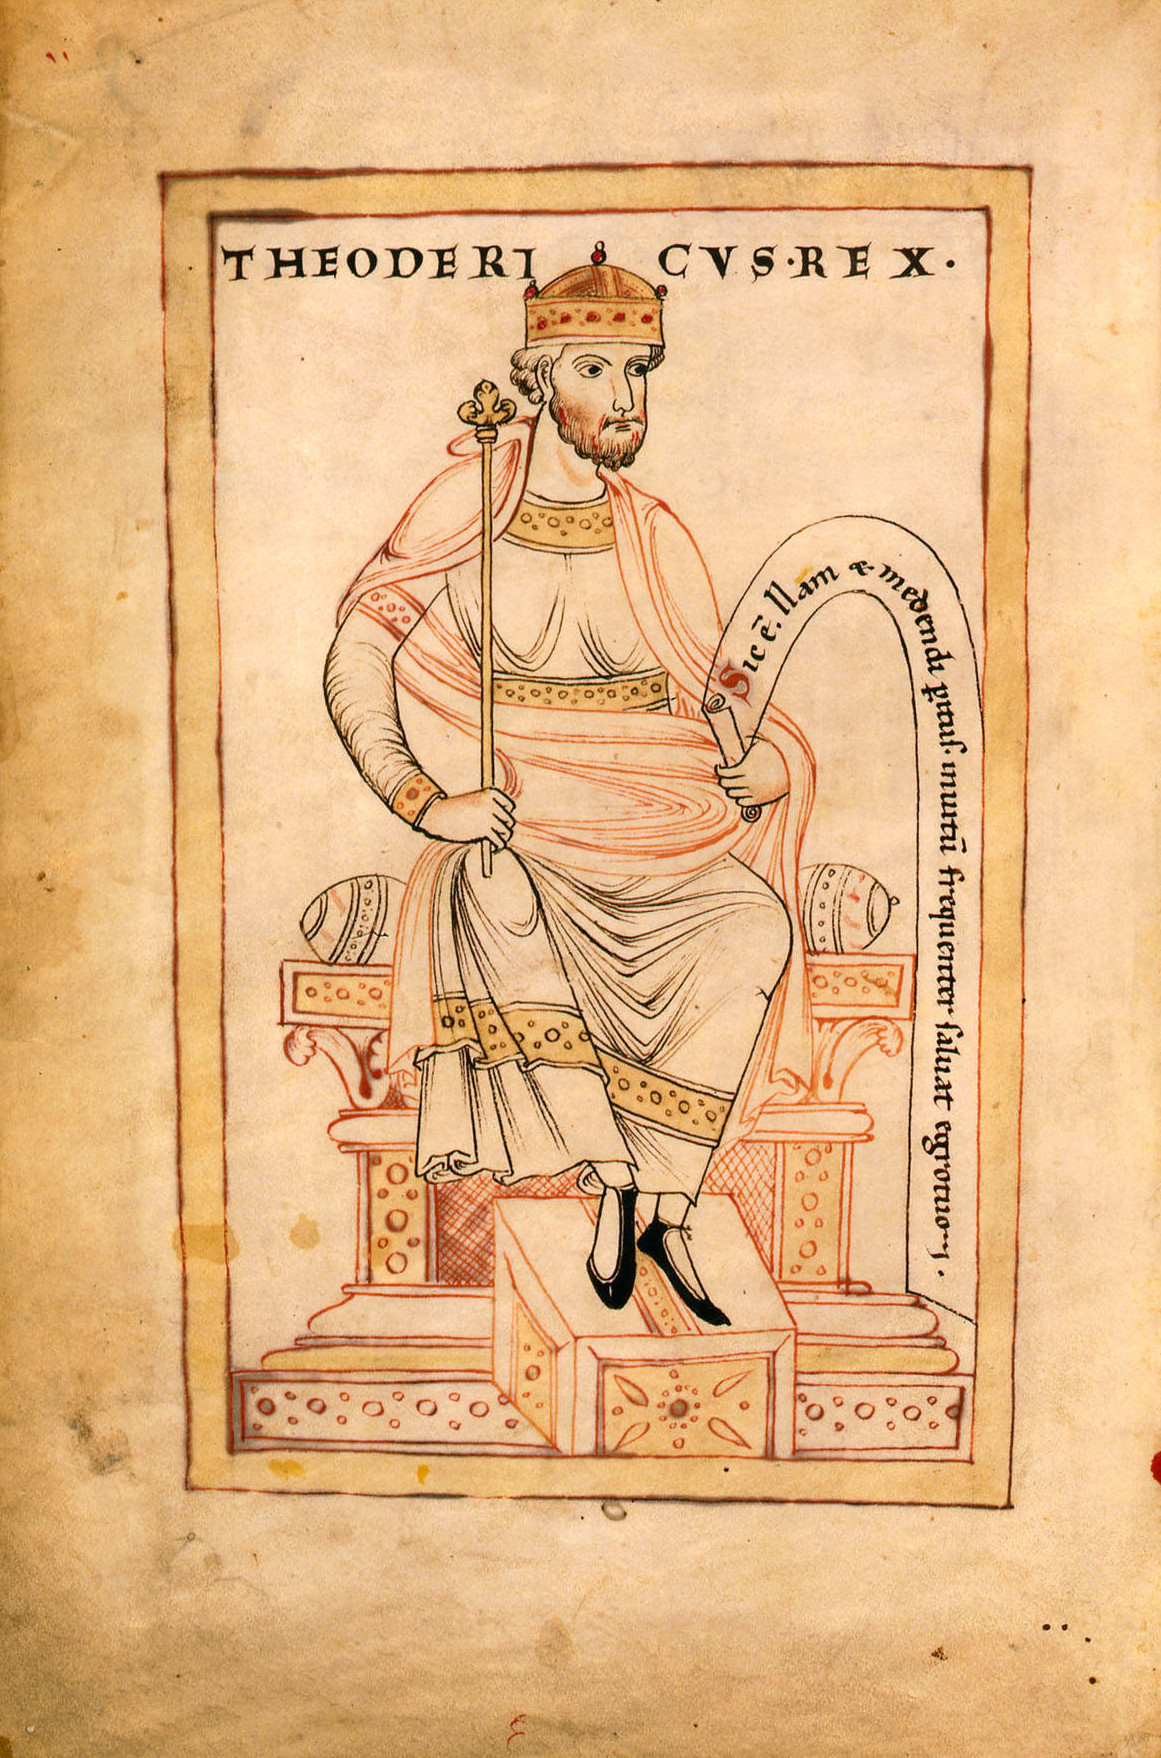 THEODERICVS·REX·
Sic ē. Nam & medendi p̄itus. inuitū frequenter saluat egrotuoꝝ.